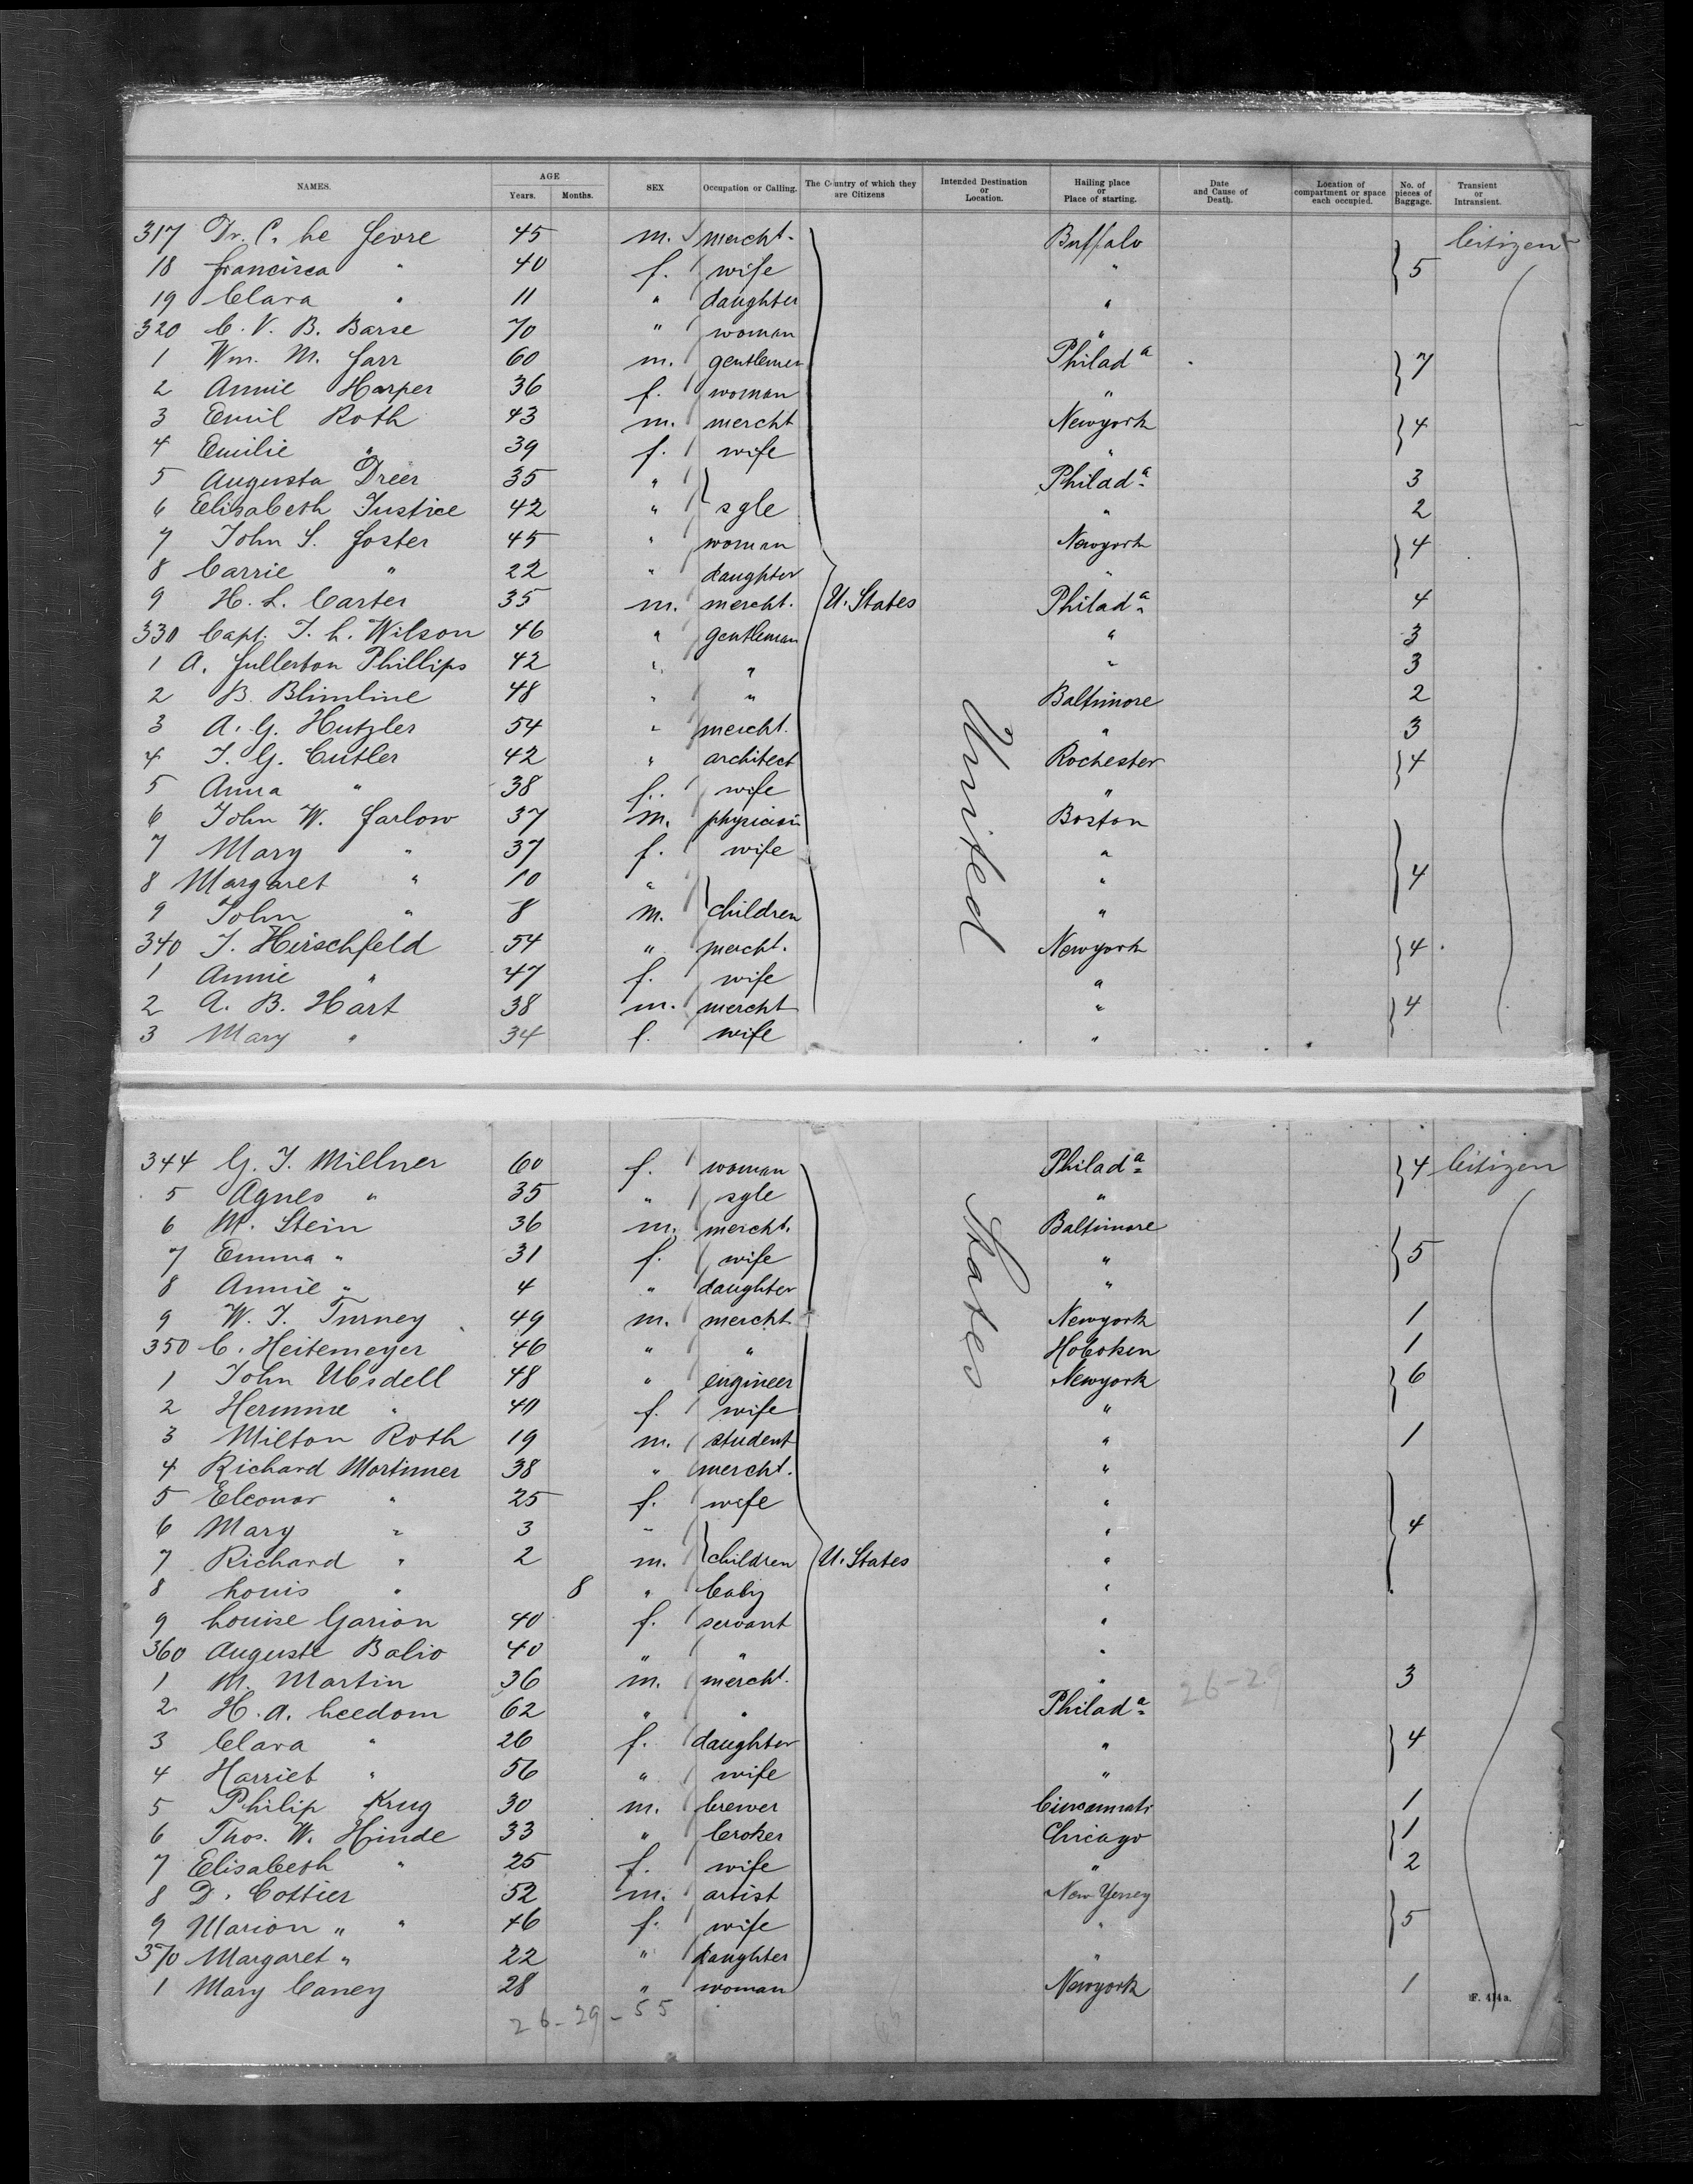 NAMES. AGE Years. Months. SEX Occupation or Calling. The Country of which they are Citizens Intended Destination or Location. Hailing place or Place of starting. Date and Cause of Death. Location of compartment or space each occupied. No. of pieces of Baggage. Transient or Intransient.
317 Dr. C. Le Fevre 45 m. mercht. Buffalo Citizen
18 Francisca " 40 f. wife " 5
19 Clara " 11 " daughter "
320 C. V. B. Barse 70 " woman "
1 Wm. M. Farr 60 m. gentleman Philada 7
2 Annie Harper 36 f. woman "
3 Emil Roth 43 m. mercht Newyork 4
4 Emilie " 39 f. wife "
5 Augusta Dreer 35 " Philada 3
6 Elisabeth Justice 42 " sgle " 2
7 John S. Foster 45 " woman Newyork 4
8 Carrie " 22 " daughter "
9 H. L. Carter 35 m. mercht. U. States Philada 4
330 Capt. J. L. Wilson 46 " gentleman " 3
1 A. Fullerton Phillips 42 " " " 3
2 B. Blimline 48 " " Baltimore 2
3 A. G. Hutzler 54 " mercht. " 3
4 J. G. Cutler 42 " architect Rochester 4
5 Anna " 38 f. wife "
6 John W. Farlow 37 m. physician Boston
7 Mary " 37 f. wife "
8 Margaret " 10 " " 4
9 John " 8 m. children "
340 J. Hirschfeld 54 " mercht. Newyork 4
1 Annie " 47 f. wife "
2 A. B. Hart 38 m. mercht " 4
3 Mary " 34 f. wife "
United
344 G. J. Millner 60 f. woman Philada 4 Citizen
5 Agnes " 35 " sgle "
6 M. Stein 36 m. mercht. Baltimore
7 Emma " 31 f. wife " 5
8 Annie " 4 " daughter "
9 W. J. Turney 49 m. mercht Newyork 1
350 C. Heitemeyer 46 " " Hoboken 1
1 John Ubsdell 48 " engineer Newyork 6
2 Hermine " 40 f. wife "
3 Milton Roth 19 m. student " 1
4 Richard Mortimer 38 " mercht. "
5 Eleonor " 25 f. wife "
6 Mary " 3 " " 4
7 Richard " 2 m. children U. States "
8 Louis " 8 " baby "
9 Louise Garion 40 f. servant "
360 Auguste Balio 40 " " "
1 M. Martin 36 m. mercht. " 26-29 3
2 H. A. Leedom 62 " " Philada
3 Clara " 26 f. daughter " 4
4 Harriet " 56 " wife "
5 Philip Krug 30 m. brewer Cincinnati 1
6 Thos. W. Hinde 33 " broker Chicago 1
7 Elisabeth " 25 f. wife " 2
8 D. Cottier 52 m. artist New Yersey
9 Marion " " 46 f. wife " 5
370 Margaret " 22 " daughter "
1 Mary Caney 28 " woman Newyork 1
States
F. 414a.
26-29-55